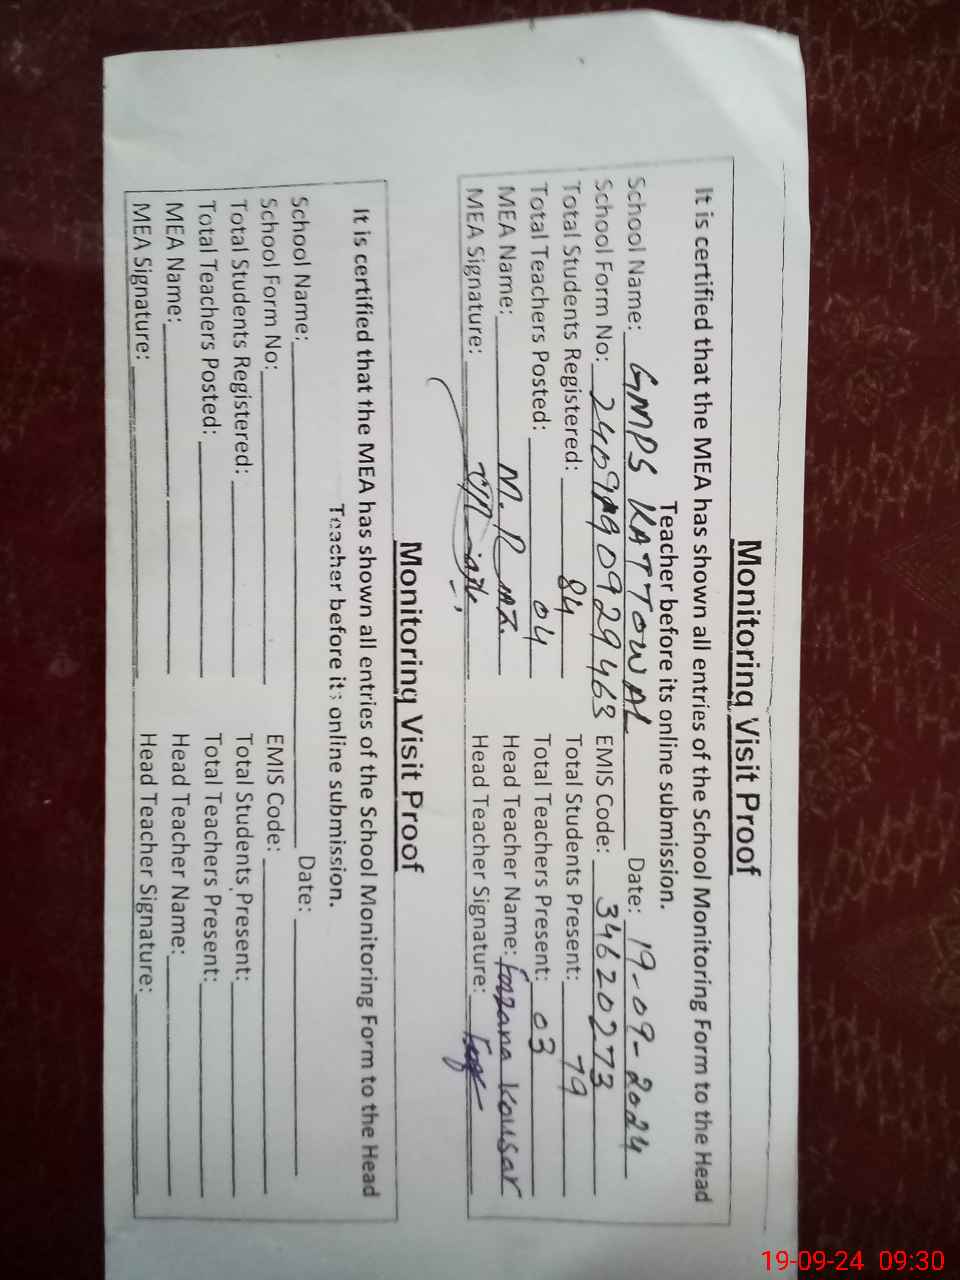 Monitoring Visit Proof
It is certified that the MEA has shown all entries of the School Monitoring Form to the Head
Teacher before its online submission.
School Name: GMPS KATTOWAL Date: 19-09-2024
School Form No: 2409190929463 EMIS Code: 34620273
Total Students Registered: 84 Total Students Present: 79
Total Teachers Posted: 04 Total Teachers Present: 03
MEA Name: M. Head Teacher Name: Farzana Kousar
MEA Signature: Head Teacher Signature:
Monitoring Visit Proof
It is certified that the MEA has shown all entries of the School Monitoring Form to the Head
Teacher before its online submission.
School Name: Date:
School Form No: EMIS Code:
Total Students Registered: Total Students Present:
Total Teachers Posted: Total Teachers Present:
MEA Name: Head Teacher Name:
MEA Signature: Head Teacher Signature:
19-09-24 09:30